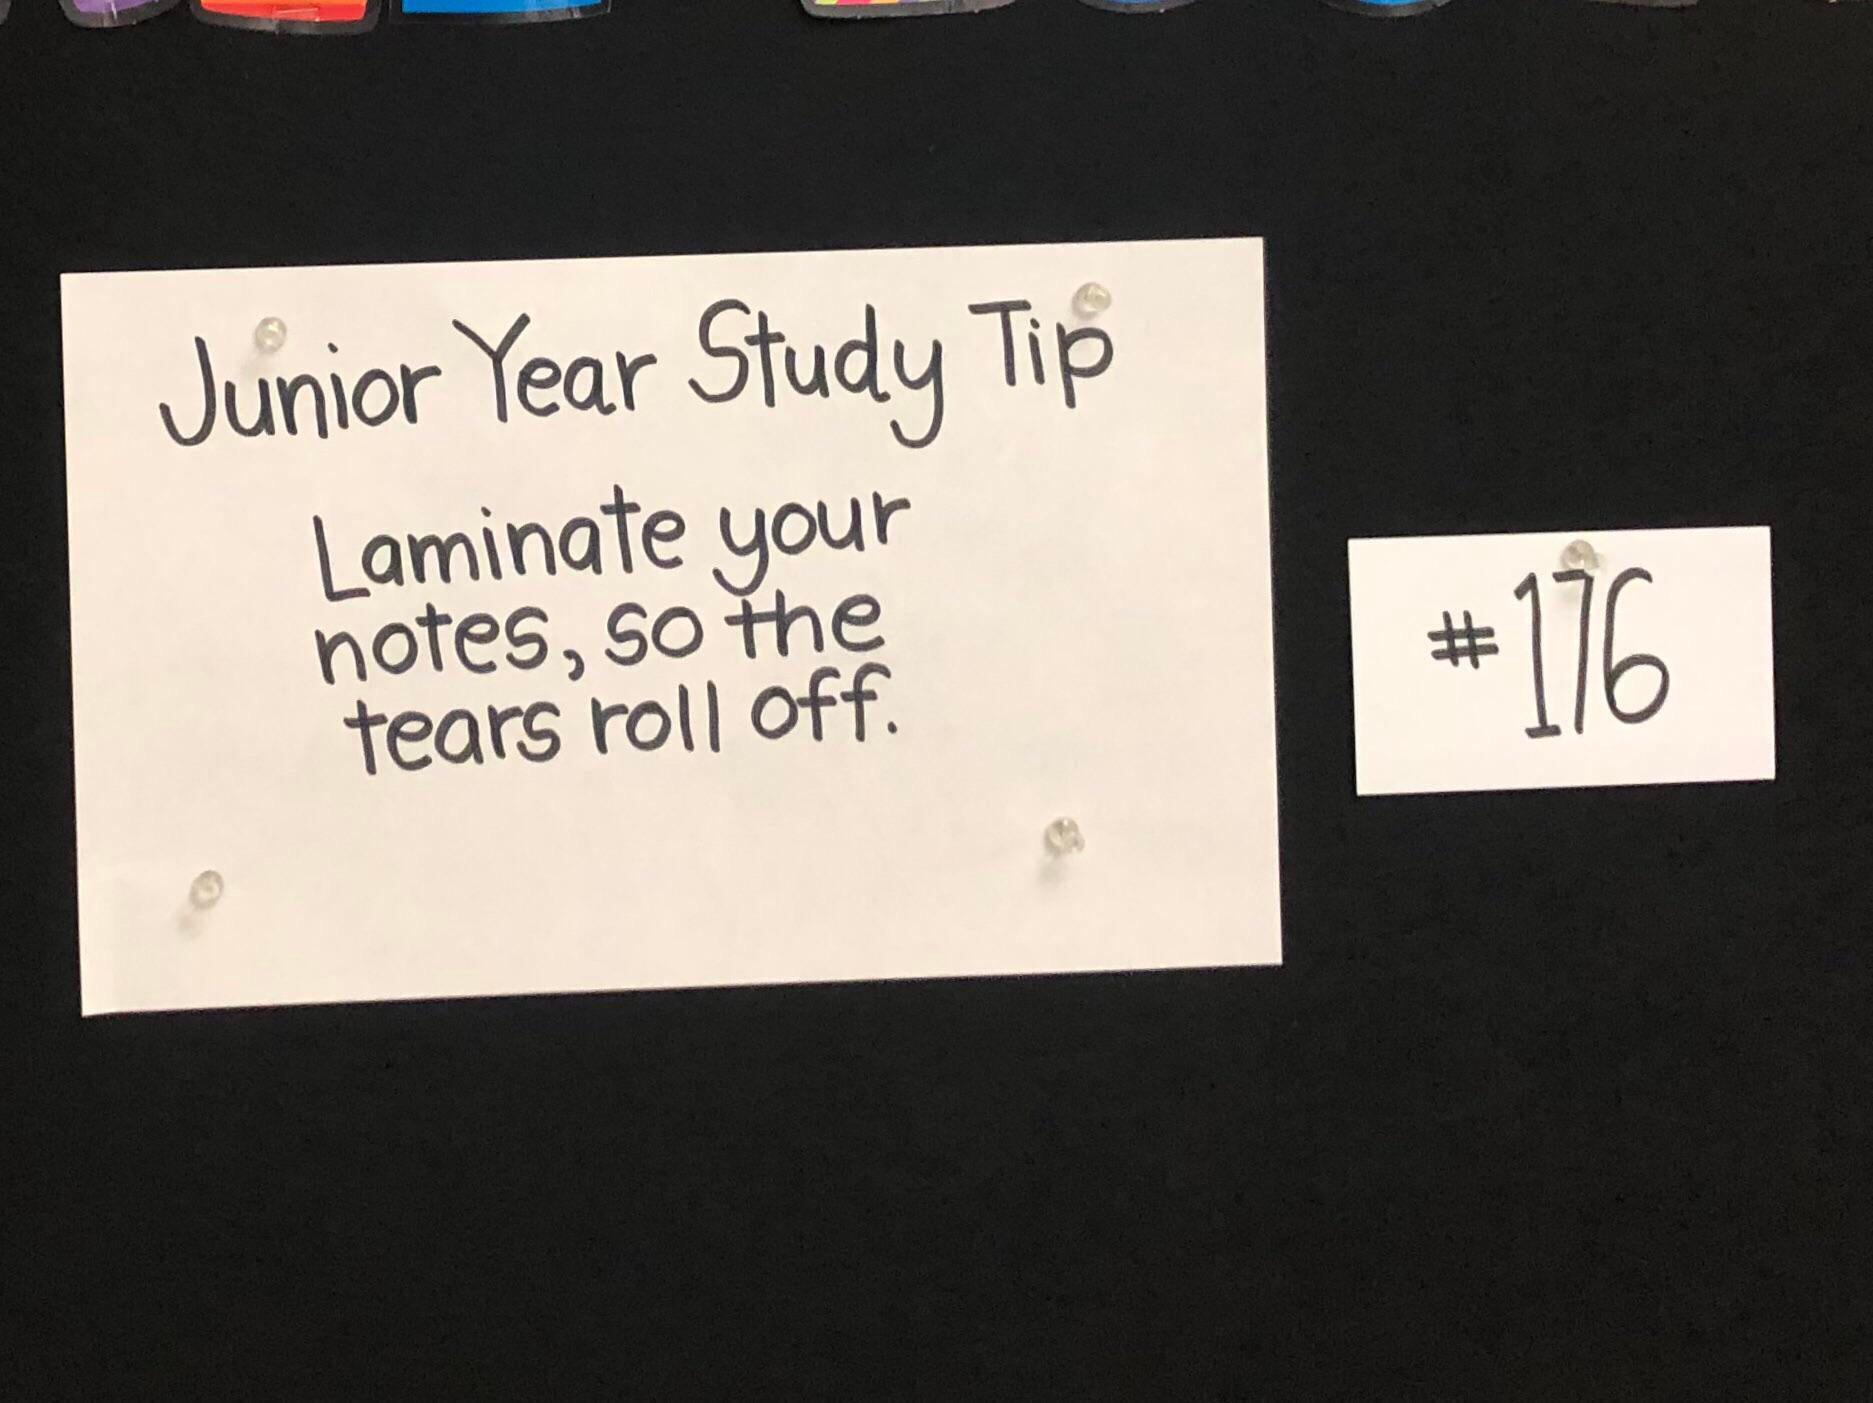 Junior Year Study Tip
Laminate your
notes, so the
tears roll off.
#176